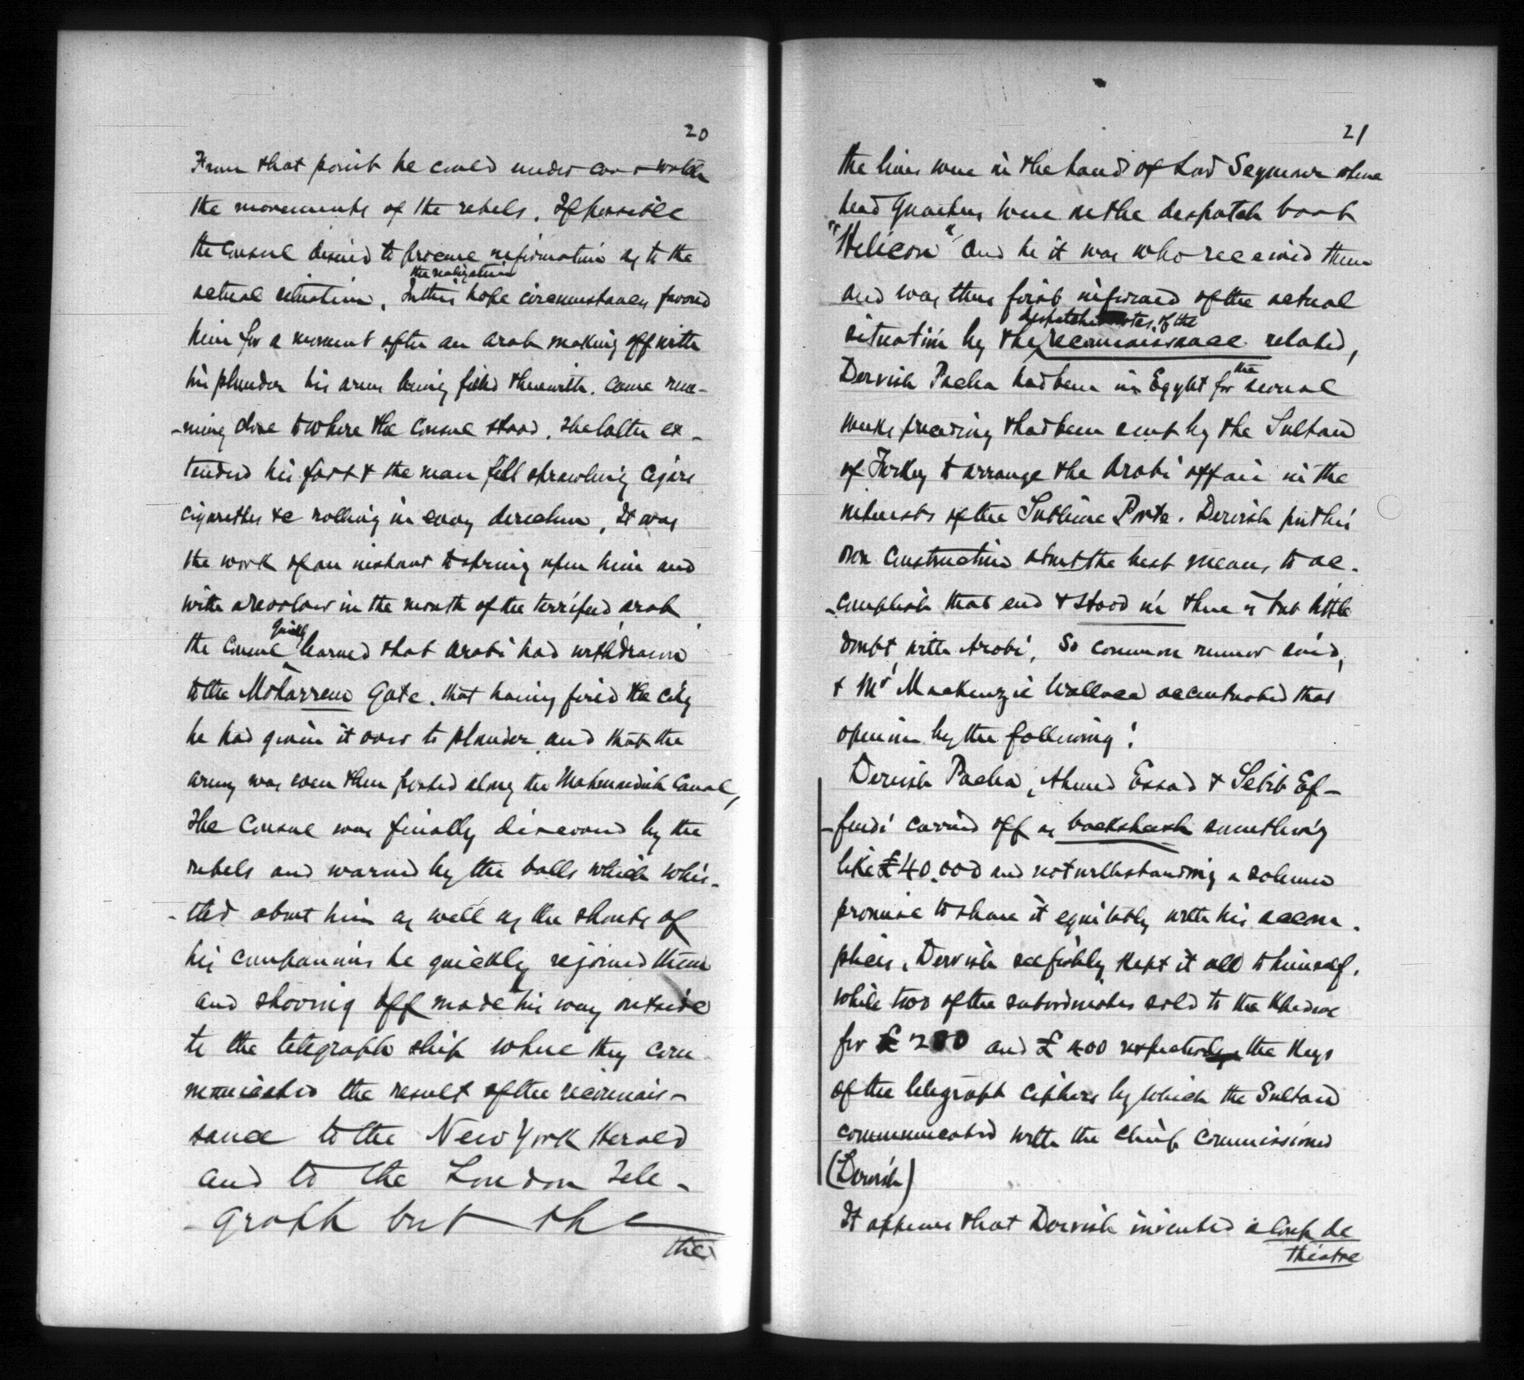 20
From that point he could under cover watch
the movements of the rebels. If possible
the Consul desired to procure information as to the
the realization
actual situation. In this hope circumstances favored
him for a moment after an arab making off with
his plunder his arms being filled therewith. Came run-
-ning close to where the Consul stood. The latter ex-
tended his foot & the man fell sprawling cigars
cigarettes &c rolling in every direction, It was
the work of an instant to spring upon him and
with a revolver in the mouth of the terrified arab
quickly
the Consul learned that Arabi had withdrawn
to the Moharrem Gate. that having fired the city
he had given it over to plunder and that the
army was even then posted along the Mahmoudieh Canal,
The Consul was finally discovered by the
rebels and warned by the balls which whis-
-tled about him as well as the shouts of
his companions he quickly rejoined them
and shoving off made his way outside
to the telegraph ship where they com
municated the result of the reconnais-
sance to the New York Herald
and to the London Tele-
-graph but the
the
21
the lines were in the hands of Lord Seymour whose
head quarters were on the despatch boat
"Helicon" and he it was who received them
and was thus first informed of the actual
despatches notes of the
situation by the reconnaissance related,
the
Dervish Pacha had been in Egypt for several
weeks preceding & had been sent by the Sultan
of Turkey to arrange the Arabi affair in the
interests of the Sublime Porte. Dervish put his
own construction about the best means to ac-
-complish that end & stood in there is but little
doubt with Arabi, So common rumor said,
& Mr Mackenzie Wallace accentuated that
opinion by the following:
Dervish Pacha, Ahmed Essad & Lebib Ef-
-fendi carried off as backsheesh something
like £40.000 and notwithstanding a solemn
promise to share it equitably with his accom-
plices, Dervish selfishly kept it all to himself.
while two of the subordinates sold to the Khedive
for £ 200 and £ 400 respectively the keys
of the telegraph ciphers by which the Sultan
communicated with the chief commissioner
(Dervish)
It appears that Dervish invented a coup de
théatre